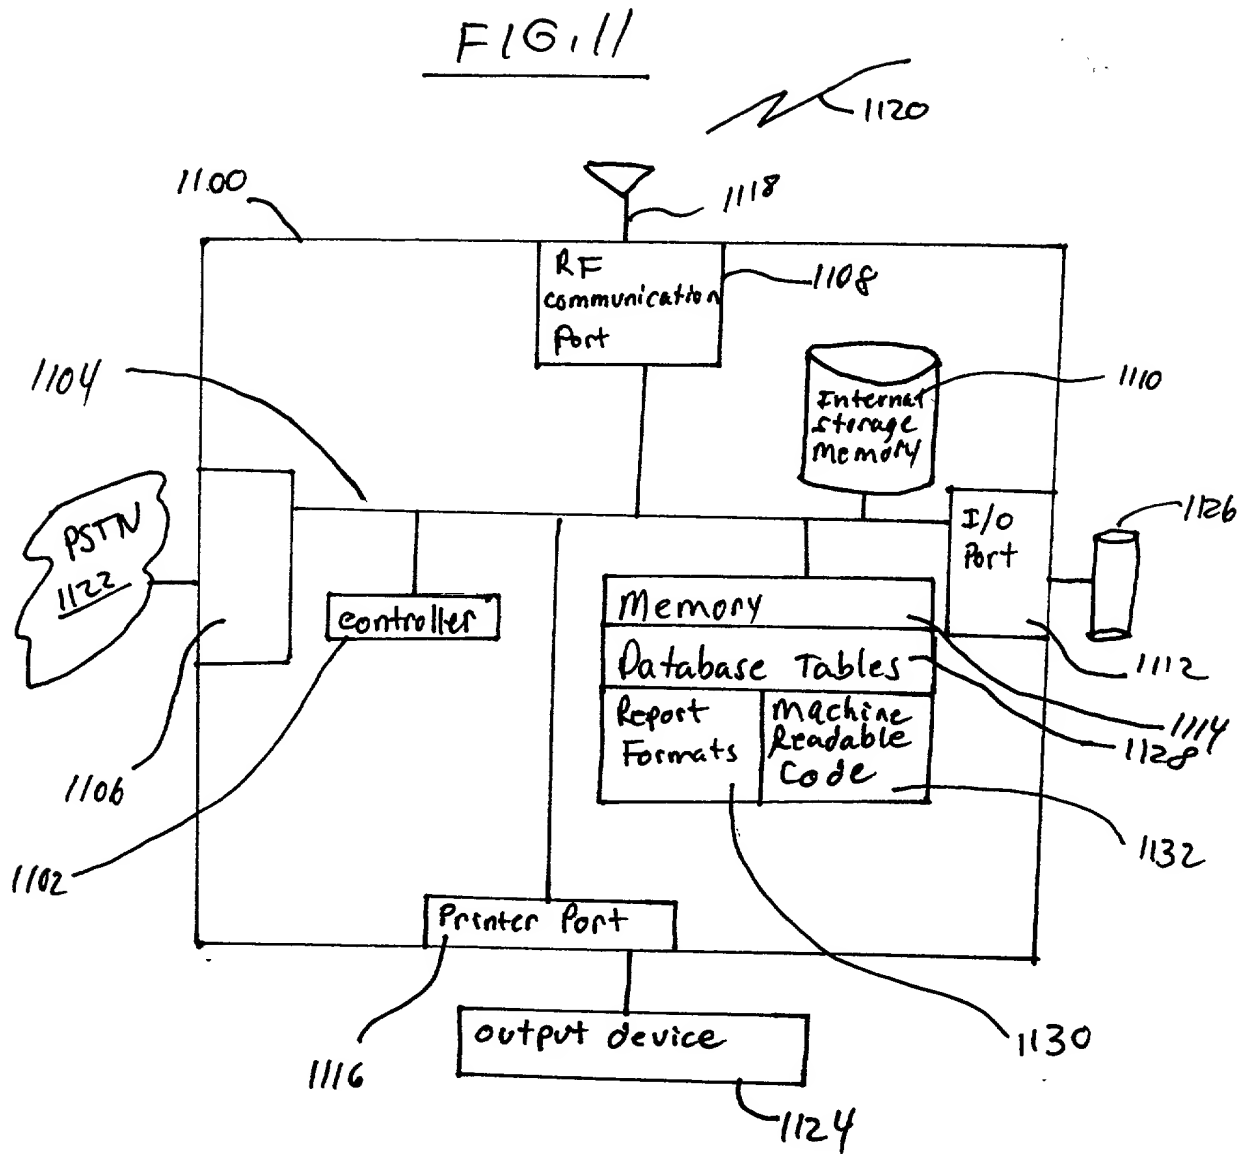 FIG. 11
1120
1100
1118
RF
communication
Port
1108
1104
1110
Internal
storage
Memory
PSTN
1122
I/O
Port
1126
controller
Memory
Database Tables
Report
Formats
Machine
Readable
Code
1112
1114
1128
1106
1132
1102
Printer Port
1130
output device
1116
1124